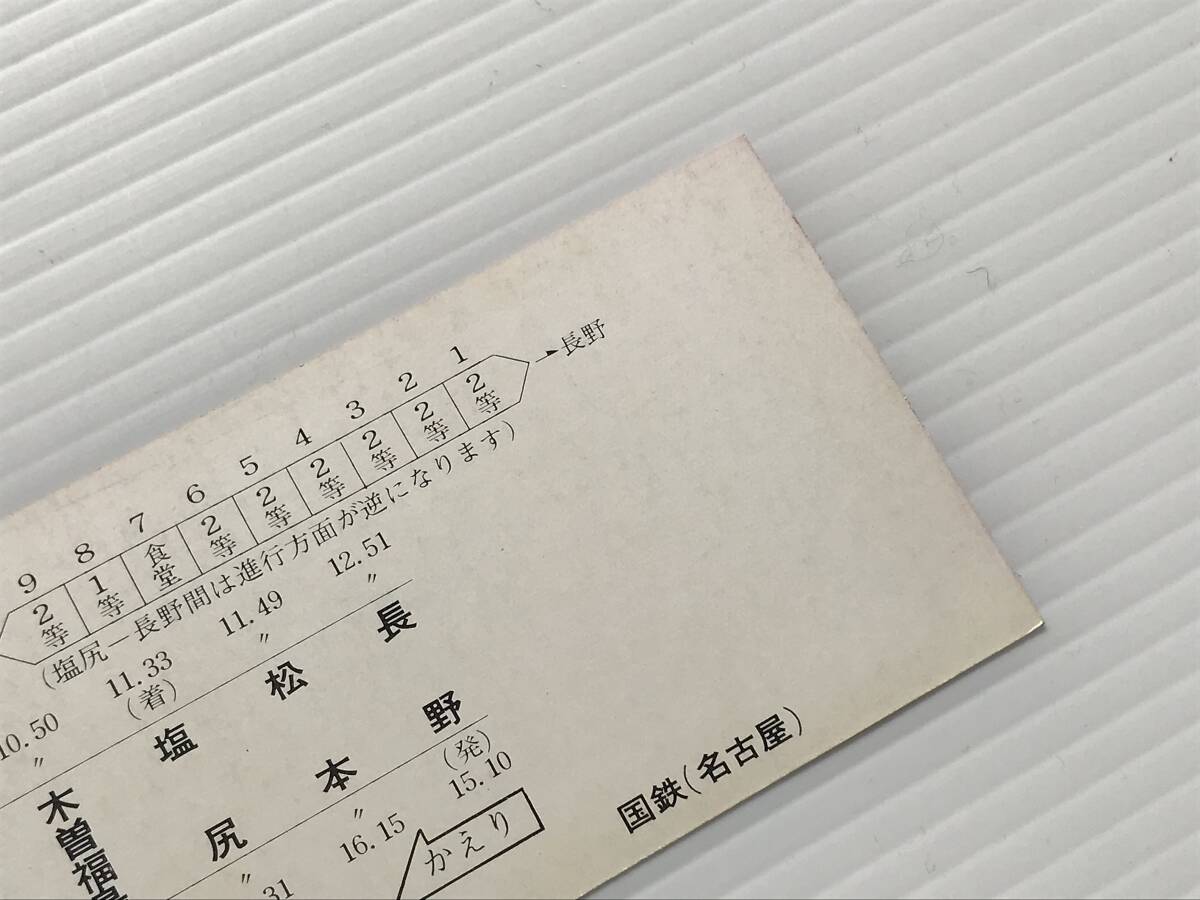 9 8 7 6 5 4 3 2 1
2等 1等 食堂 2等 2等 2等 2等 2等 2等 →長野
(塩尻ー長野間は進行方面が逆になります)
10.50 11.33 11.49 12.51
〃 (着) 〃 〃
木曽福 塩尻 松本 長野
〃 〃 (発)
31 16.15 15.10
かえり
国鉄(名古屋)